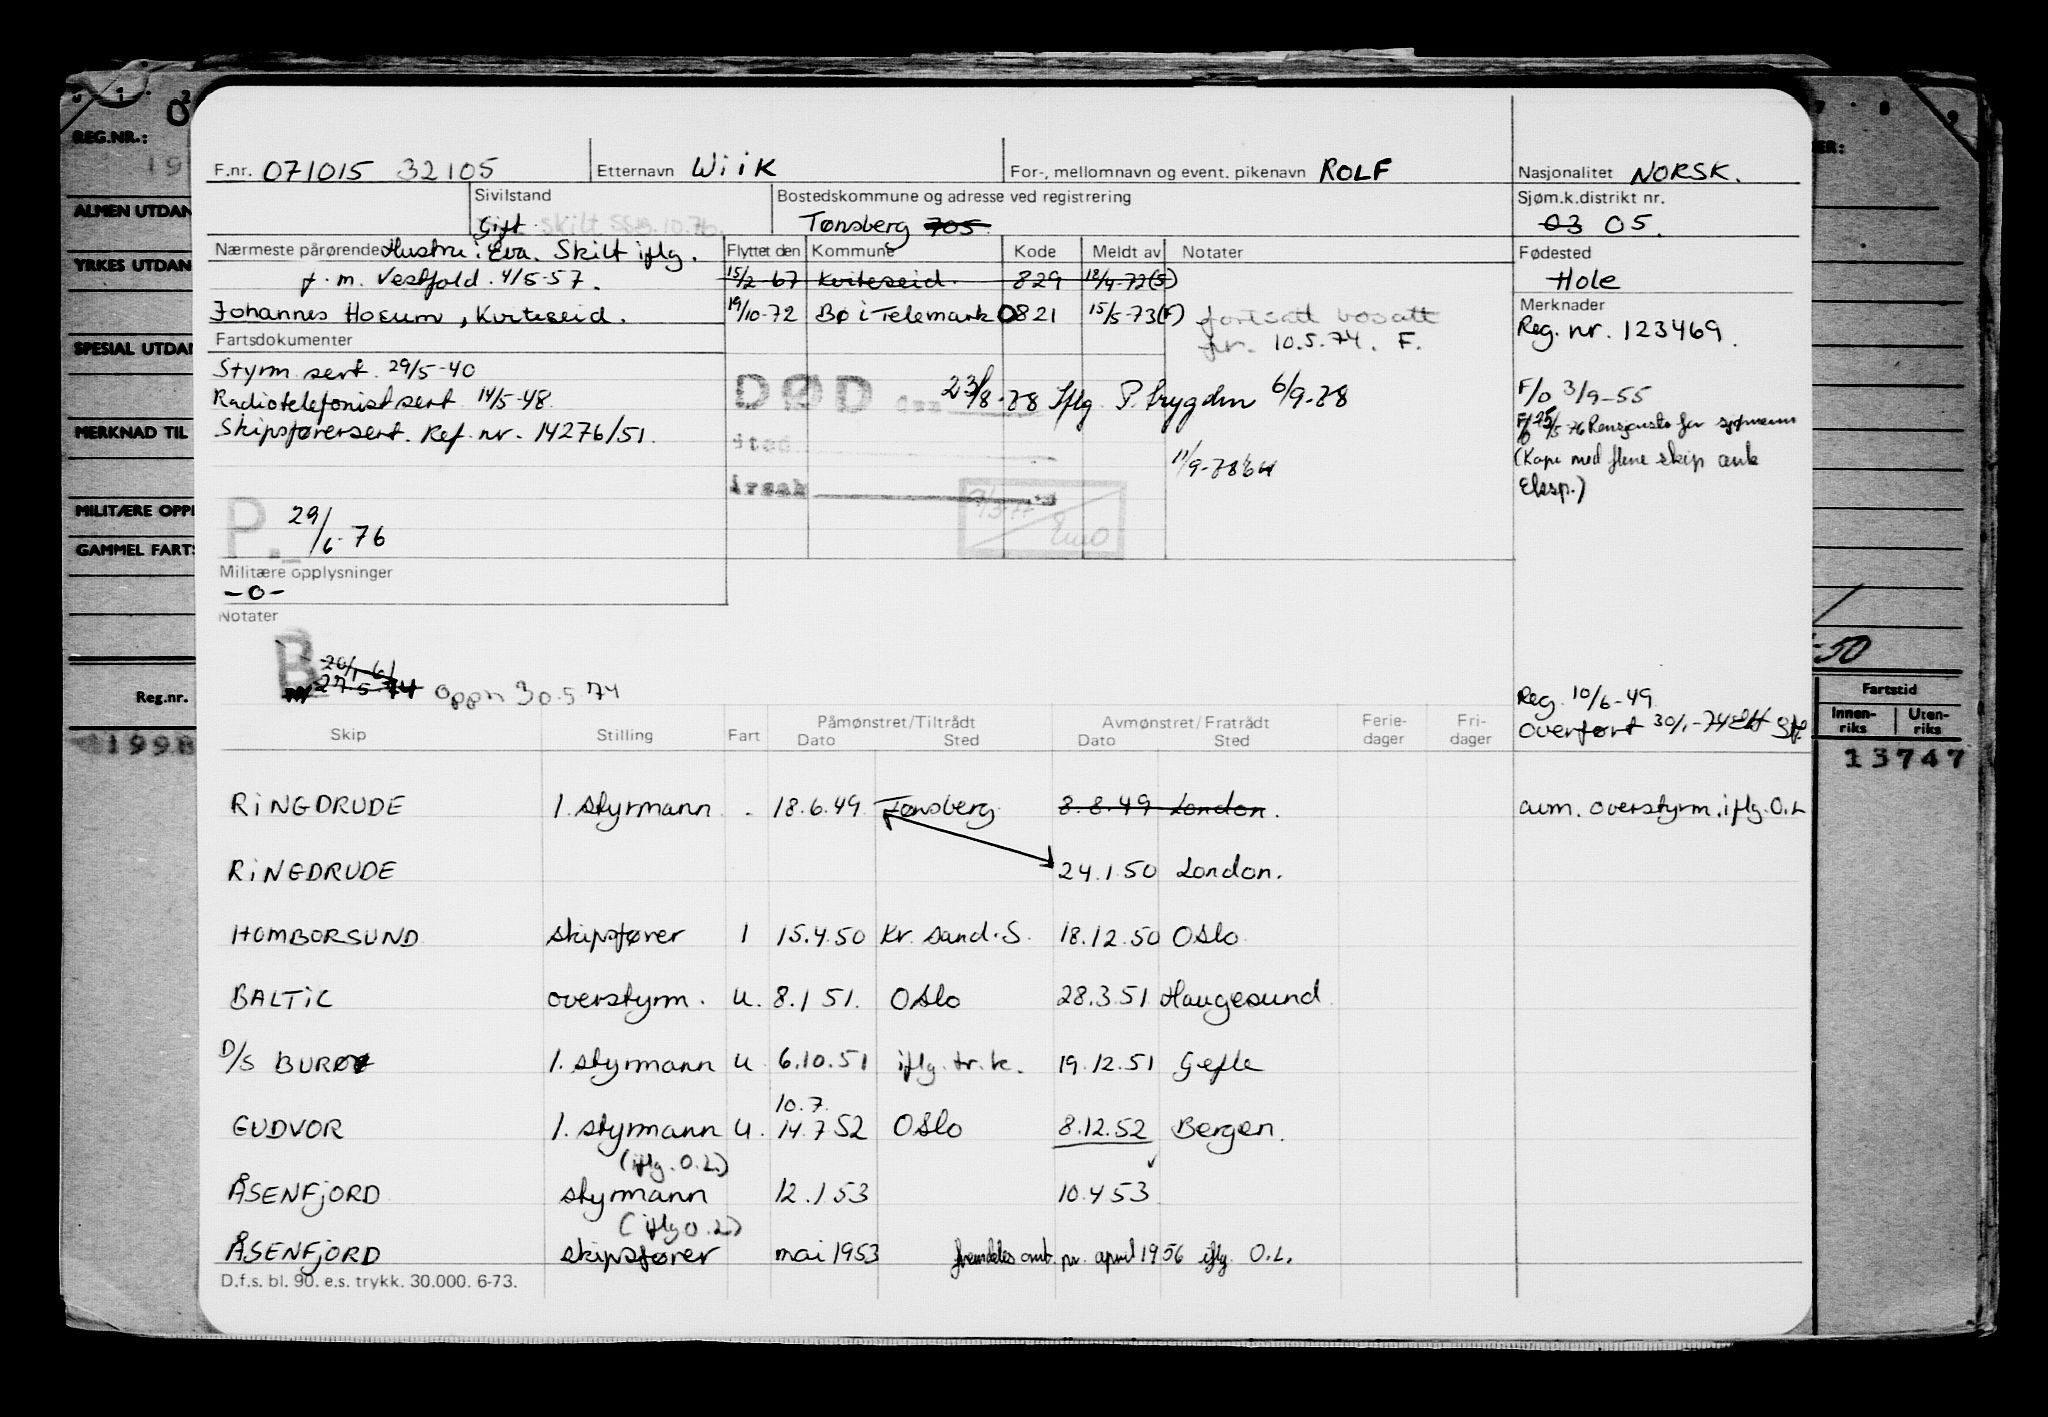 REG.NR.:
ALMEN UTDAN
YRKES UTDAN
SPESIAL UTDAN
MERKNAD TIL
MILITÆRE OPPL
GAMMEL FARTS
Reg.nr.
1998
F.nr. 071015 32105 Etternavn WiiK For-, mellomnavn og event. pikenavn ROLF Nasjonalitet NORSK.
Sivilstand Bostedskommune og adresse ved registrering Sjøm.k.distrikt nr.
Gift. Skilt SSB.10.76. Tønsberg 705 03 05.
Nærmeste pårørende Hustru: Eva. Skilt iflg. Flyttet den Kommune Kode Meldt av Notater Fødested
f.m. Vestfold. 4/5-57. 15/2-67 Kviteseid. 829 18/4-72(S) Hole
Johannes Hoeum, Kviteseid. 19/10-72 Bø i Telemark 0821 15/5-73(F) fortsatt bosatt Merknader
Fartsdokumenter pr. 10.5.74. F. Reg. nr. 123469.
Styrm. sert. 29/5-40
Radiotelefonistsert 14/5-48 DØD den 23/8-78 Iflg. P.trygden 6/9-78 F/O 3/9-55
Skipsførersert. Ref. nr. 14276/51. sted F/O 25/5-76 Pensjonstr for sjømenn
11/9-78 (Kopi med flere skip enk
årsak Eksp.)
P. 29/6-76
Militære opplysninger
-0-
Notater
B 20/1-61
27.5.74 Oppn 30.5.74 Reg. 10/6-49
overført 30/1-74
Skip Stilling Fart Påmønstret/Tiltrådt Avmønstret/Fratrådt Ferie-dager Fri-dager
Dato Sted Dato Sted
RiNGDRUDE 1. styrmann . 18.6.49 Tønsberg 8.8.49 London. aum. overstyrm. iflg. O.L
RiNGDRUDE 24.1.50 London.
HOMBORSUND skipsfører 1 15.4.50 Kr. sand.S. 18.12.50 Oslo
BALTiC overstyrm. u. 8.1 51. Oslo 28.3.51 Haugesund
D/S BURØY 1. styrmann u 6.10.51 iflg. tr.k. 19.12.51 Gefle
10.7.
GUDVOR 1. styrmann u. 14.7 52 Oslo 8.12.52 Bergen.
(iflg. O.L.)
ÅSENFjORD styrmann 12.1 53 10.4 53
(iflg O.L)
ÅSENFjORD skipsfører mai 1953 fremdeles omb. pr. april 1956 iflg. O.L.
D.f.s. bl. 90. e.s. trykk. 30.000. 6-73.
-50
Fartstid
Innen-riks Uten-riks
13747